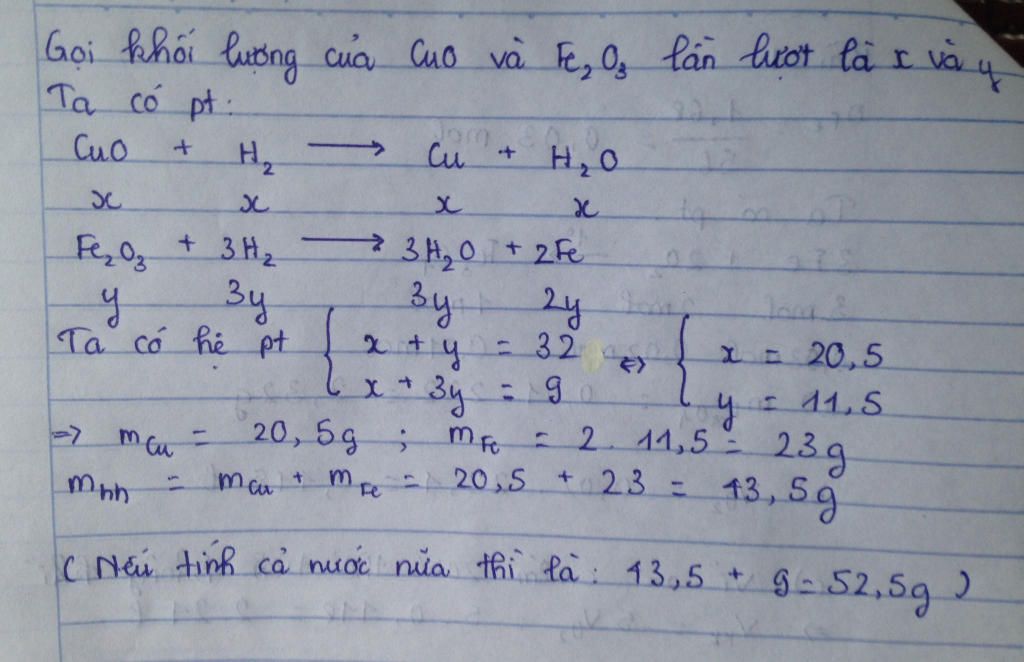 Gọi khối lượng của CuO và Fe₂O₃ lần lượt là x và y
Ta có pt:
CuO + H₂ ⟶ Cu + H₂O
x x x x
Fe₂O₃ + 3H₂ ⟶ 3H₂O + 2Fe
y 3y 3y 2y
Ta có hệ pt { x + y = 32 ⇔ { x = 20,5
x + 3y = 9 y = 11,5
=> mCu = 20,5g ; mFe = 2. 11,5 = 23g
mhh = mCu + mFe = 20,5 + 23 = 43,5g
(Nếu tính cả nước nữa thì là: 43,5 + 9 = 52,5g)